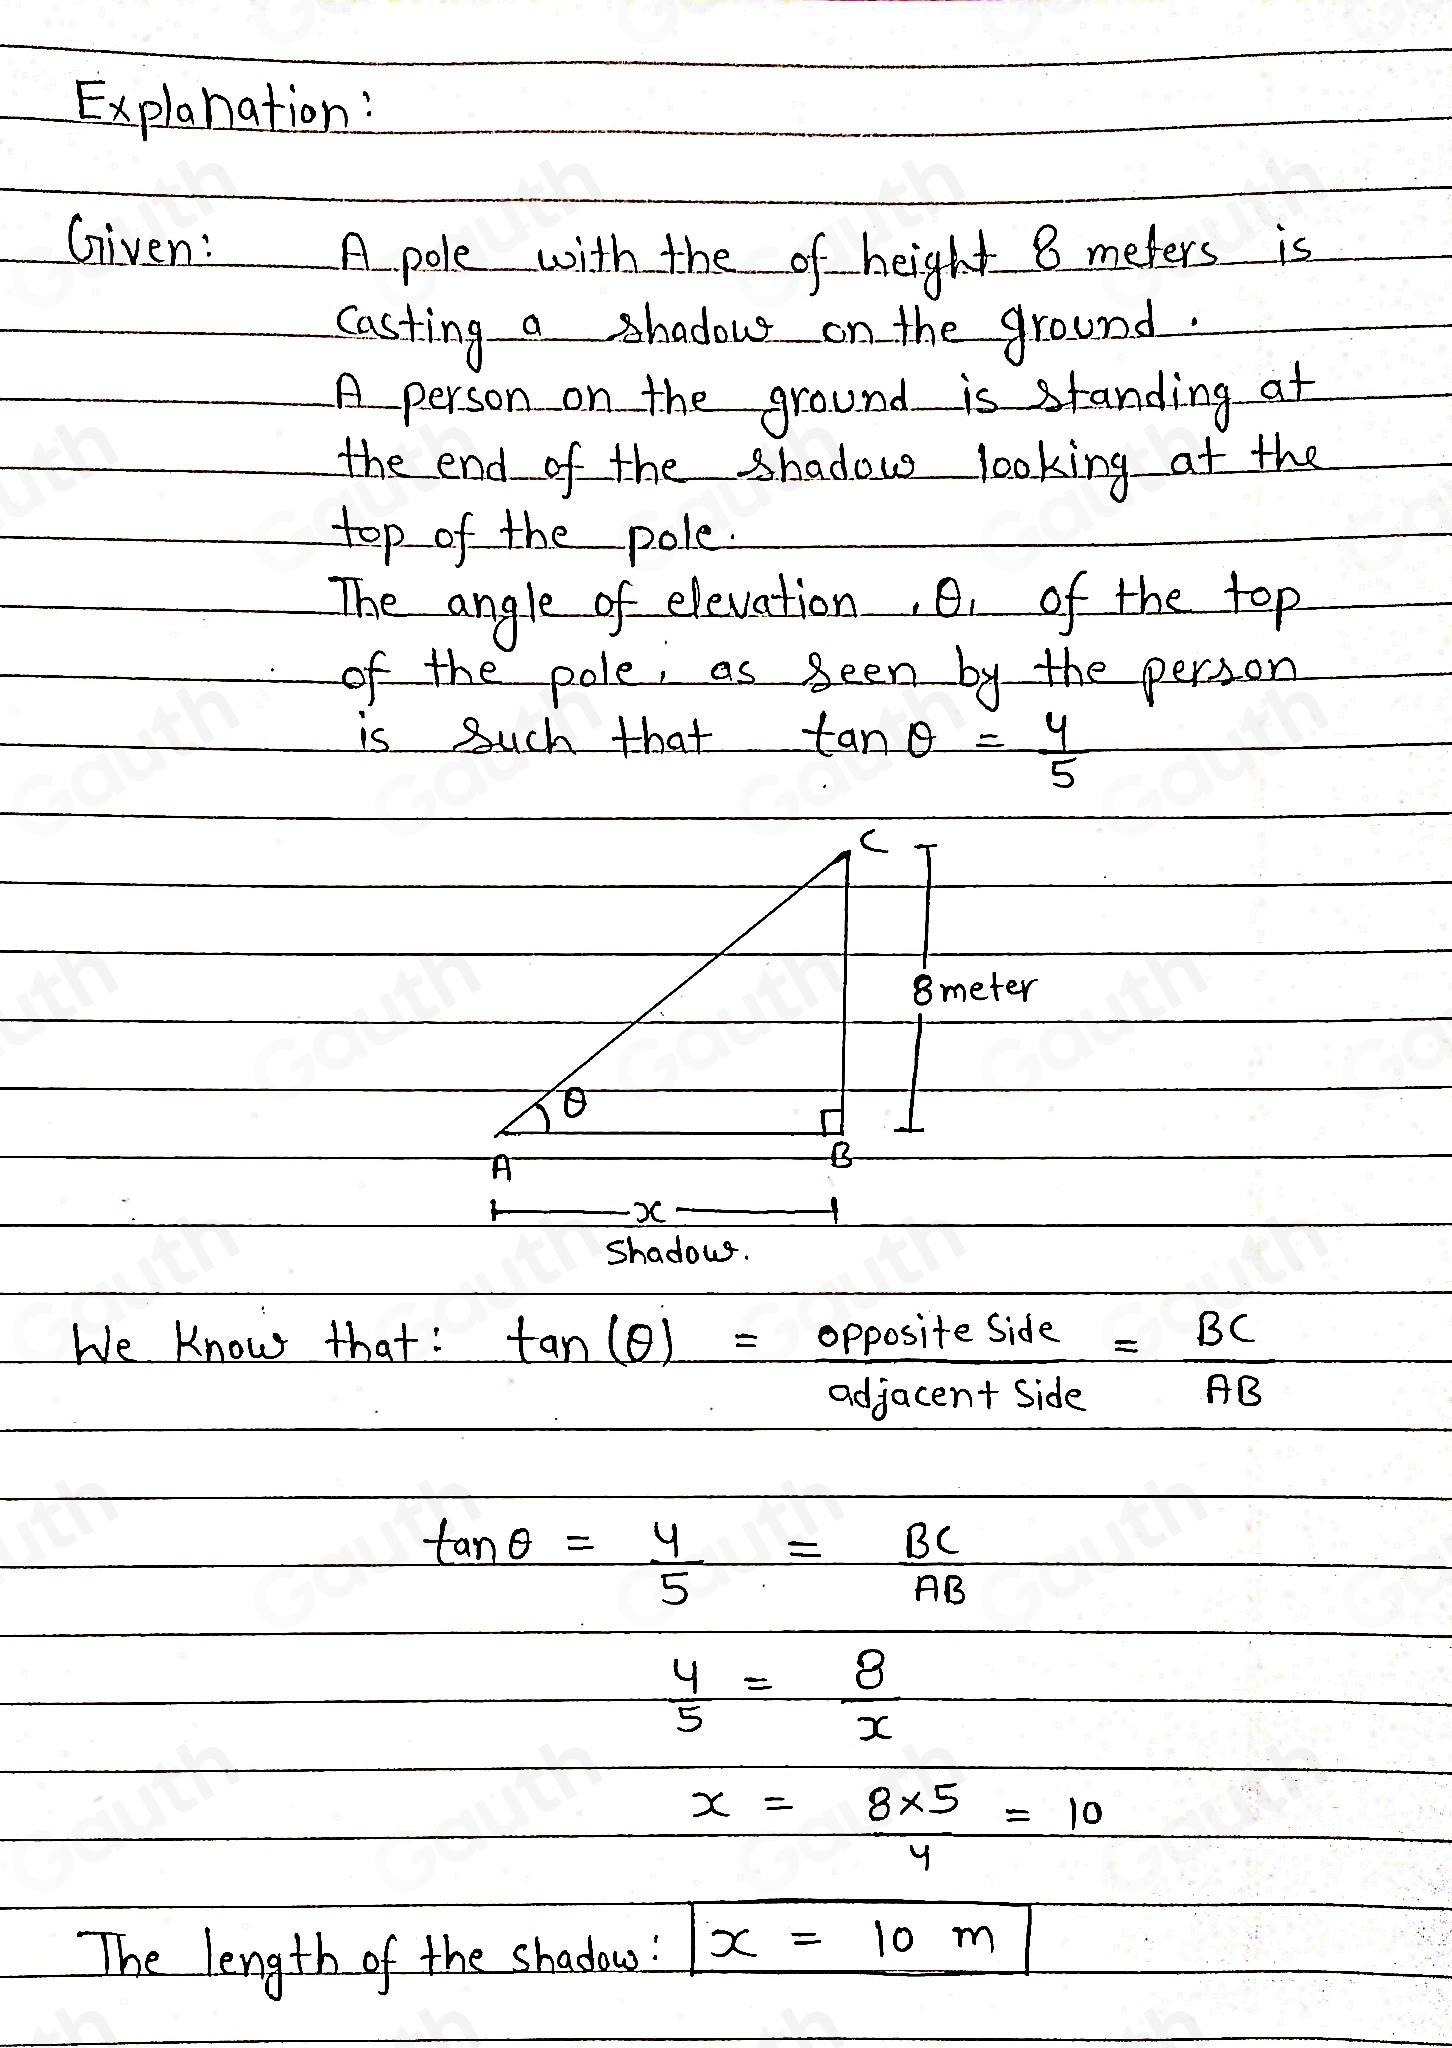 Explanation:
Given: A pole with the of height 8 meters is
casting a shadow on the ground.
A person on the ground is standing at
the end of the shadow looking at the
top of the pole.
The angle of elevation, θ, of the top
of the pole, as seen by the person
is such that tan θ = 4/5
C
8 meter
θ
A B
x
Shadow.
We know that: tan (θ) = opposite side / adjacent side = BC / AB
tan θ = 4/5 = BC / AB
4/5 = 8/x
x = 8×5 / 4 = 10
The length of the shadow: x = 10 m